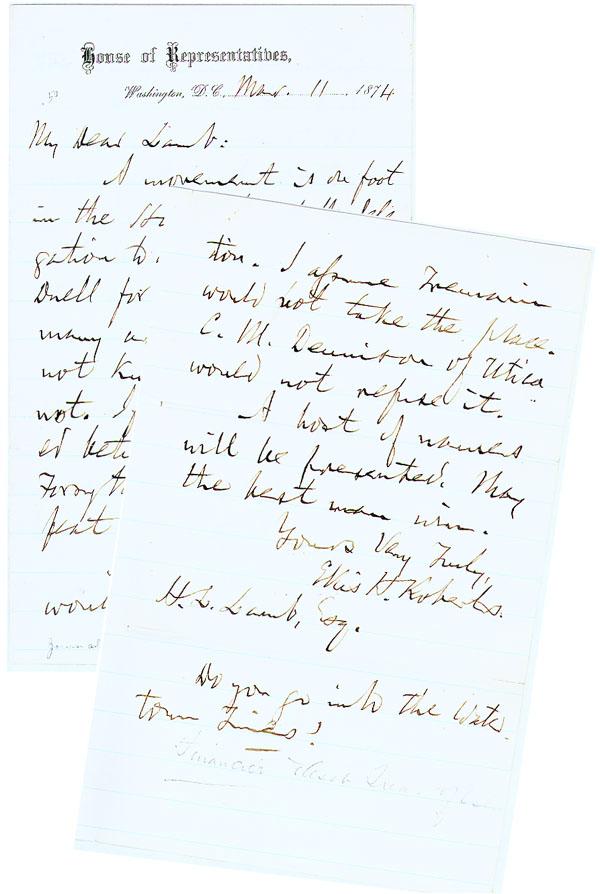 House of Representatives,
Washington, D.C., Mar. 11 1874
My Dear Lamb:
A movement is on foot
in the
gation to
Duell for
many
not
not.
would
tion. I assume Tremain
would not take the place.
C. M. Dennison of Utica
would not refuse it.
A host of names
will be presented. May
the best man win.
Yours Very Truly,
Ellis H. Roberts.
H. L. Lamb, Esq.
Do you go into the Water-
town Times?